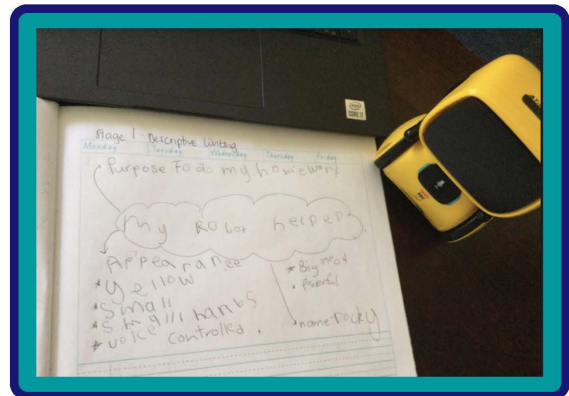 Stage 1 - Descriptive Writing
Monday Tuesday Wednesday Thursday Friday
Purpose To do my homework
My Robot helper
Appearance
* Yellow
* Small
* Small hands
* Voice controlled.
* Big head
• Powerful
* name rocky
intel
CORE i7